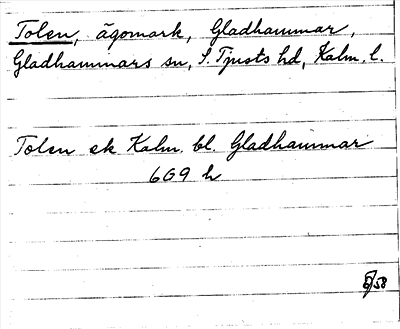 Tolen, ägomark, Gladhammar,
Gladhammars sn, S. Tjusts hd, Kalm. l.
Tolen ek Kalm. bl. Gladhammar
609 h
/58